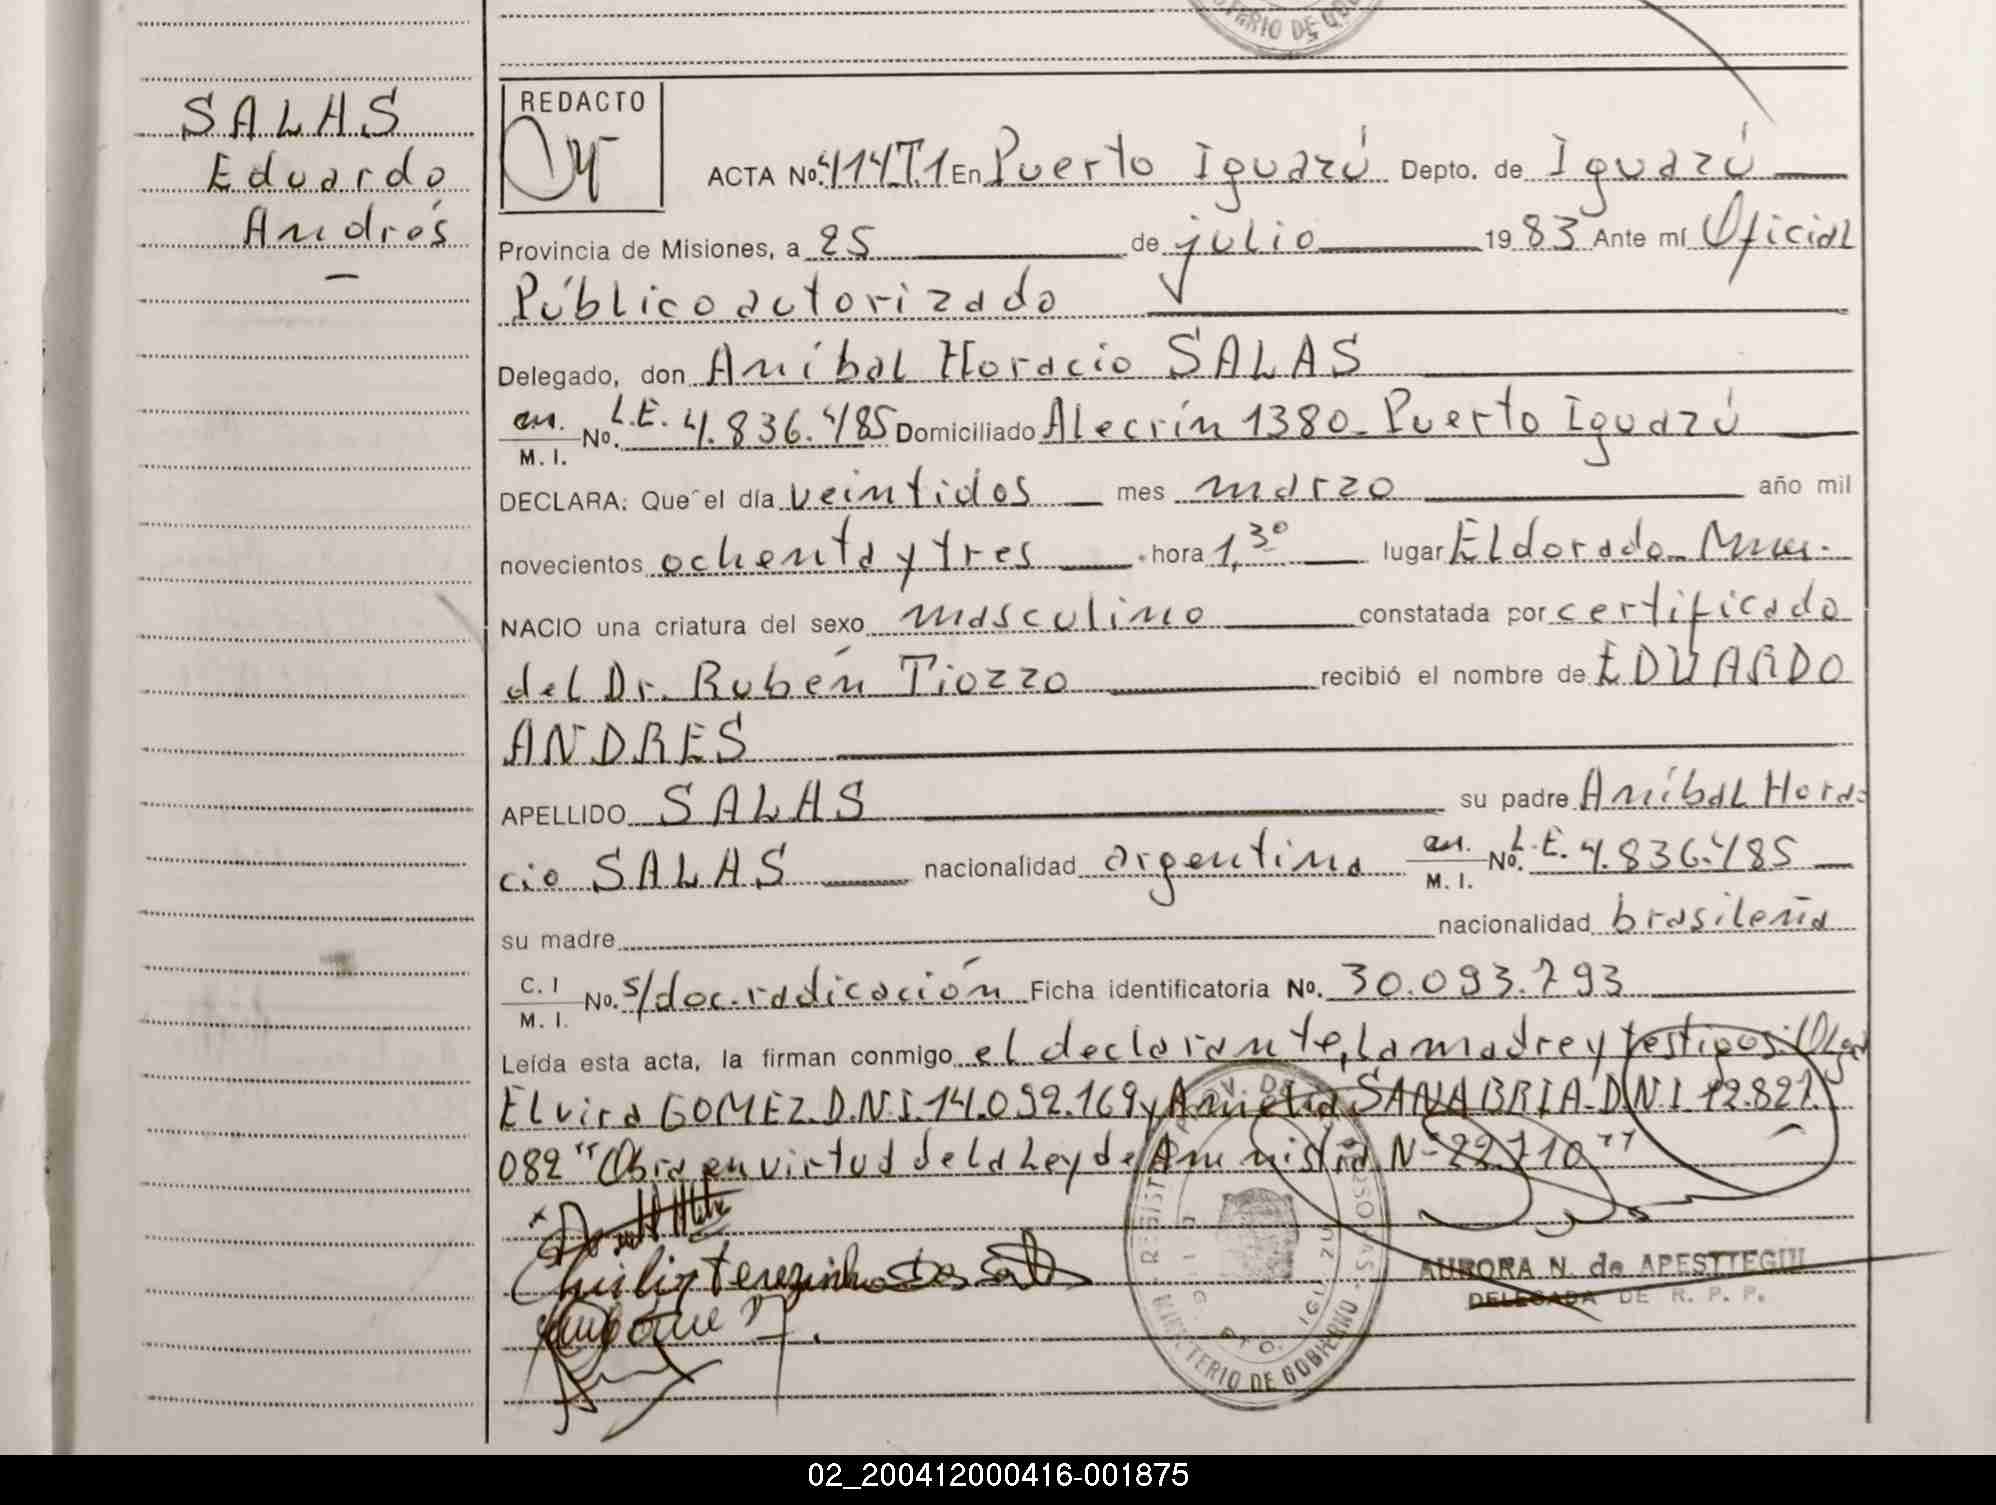 SALAS
Eduardo
Andrés
REDACTO
ACTA No. 414 T.1 En Puerto Iguazú Depto. de Iguazú
Provincia de Misiones, a 25 de julio 1983 Ante mí Oficial
Público autorizado
Delegado, don Aníbal Horacio SALAS
M. I. No. L.E. 4.836.485 Domiciliado Alecrín 1380 - Puerto Iguazú
DECLARA: Que el día veintidos mes marzo año mil
novecientos ochenta y tres hora 1,30 lugar Eldorado - Mnes.
NACIO una criatura del sexo masculino constatada por certificado
del Dr. Rubén Tiozzo recibió el nombre de EDUARDO
ANDRES
APELLIDO SALAS su padre Aníbal Hora
cio SALAS nacionalidad argentina M. I. No. L.E. 4.836.485
su madre nacionalidad brasileña
C. I M. I. No. s/doc. radicación Ficha identificatoria No. 30.093.793
Leída esta acta, la firman conmigo el declarante, la madre y testigos: Olga
Elvira GOMEZ. D.N.I. 14.092.169 y SANABRIA - D.N.I. 12.827.
082 "Obra en virtud de la Ley de Amnistía N° 22.710"
AURORA N. de APESTTEGUI
DELEGADA DE R. P. P.
MINISTERIO DE GOBIERNO
02_200412000416-001875